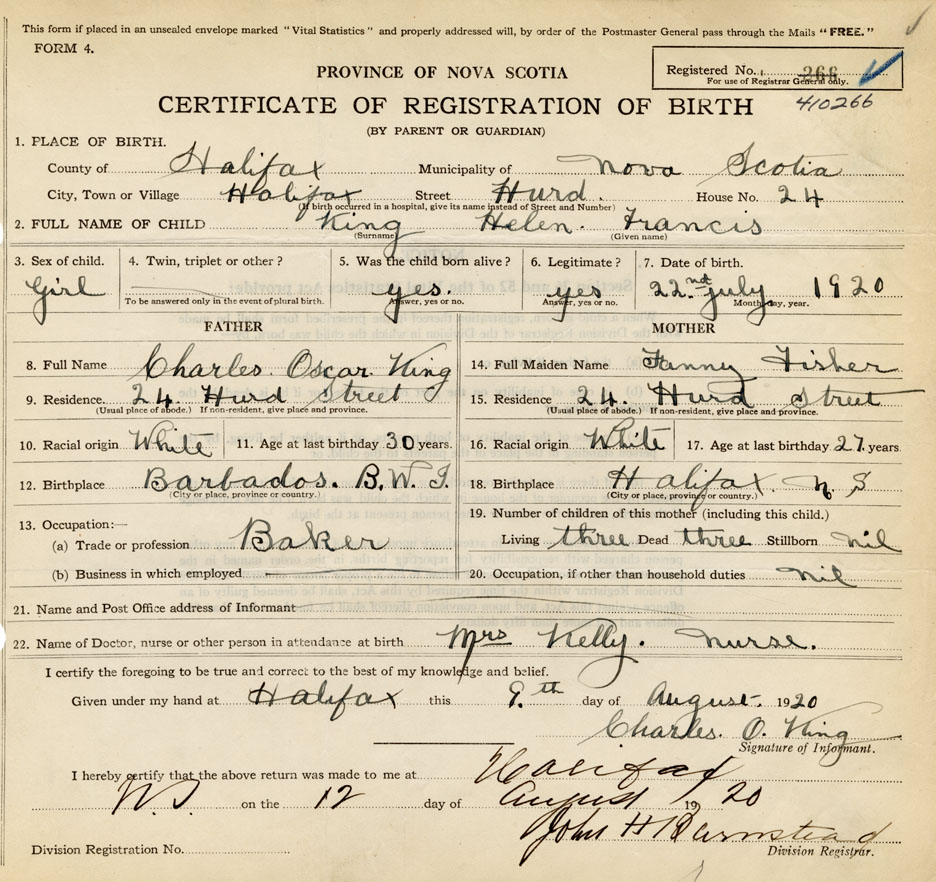 This form if placed in an unsealed envelope marked "Vital Statistics" and properly addressed will, by order of the Postmaster General pass through the Mails "FREE."
FORM 4.
PROVINCE OF NOVA SCOTIA
Registered No. 266
For use of Registrar General only.
410266
CERTIFICATE OF REGISTRATION OF BIRTH
(BY PARENT OR GUARDIAN)
1. PLACE OF BIRTH.
County of Halifax Municipality of Nova Scotia
City, Town or Village Halifax Street Hurd. House No. 24
(If birth occurred in a hospital, give its name instead of Street and Number)
2. FULL NAME OF CHILD King Helen. Francis
(Surname) (Given name)
3. Sex of child. 4. Twin, triplet or other? 5. Was the child born alive? 6. Legitimate? 7. Date of birth.
Girl yes. yes 22nd July 1920
To be answered only in the event of plural birth. Answer, yes or no. Answer, yes or no. Month, day, year.
FATHER MOTHER
8. Full Name Charles Oscar King 14. Full Maiden Name Fanny Fisher
9. Residence. 24. Hurd Street 15. Residence 24. Hurd Street
(Usual place of abode.) If non-resident, give place and province. (Usual place of abode.) If non-resident, give place and province.
10. Racial origin White 11. Age at last birthday 30 years. 16. Racial origin White 17. Age at last birthday 27. years
12. Birthplace Barbados. B.W.I. 18. Birthplace Halifax. N.S
(City or place, province or country.) (City or place, province or country.)
13. Occupation:— 19. Number of children of this mother (including this child.)
(a) Trade or profession Baker Living three Dead three Stillborn nil
(b) Business in which employed 20. Occupation, if other than household duties nil
21. Name and Post Office address of Informant
22. Name of Doctor, nurse or other person in attendance at birth Mrs Kelly. Nurse.
I certify the foregoing to be true and correct to the best of my knowledge and belief.
Given under my hand at Halifax this 9.th day of August. 1920
Charles. O. King
Signature of Informant.
I hereby certify that the above return was made to me at Halifax
N.S. on the 12 day of August 1920
John H Barnstead
Division Registration No. Division Registrar.